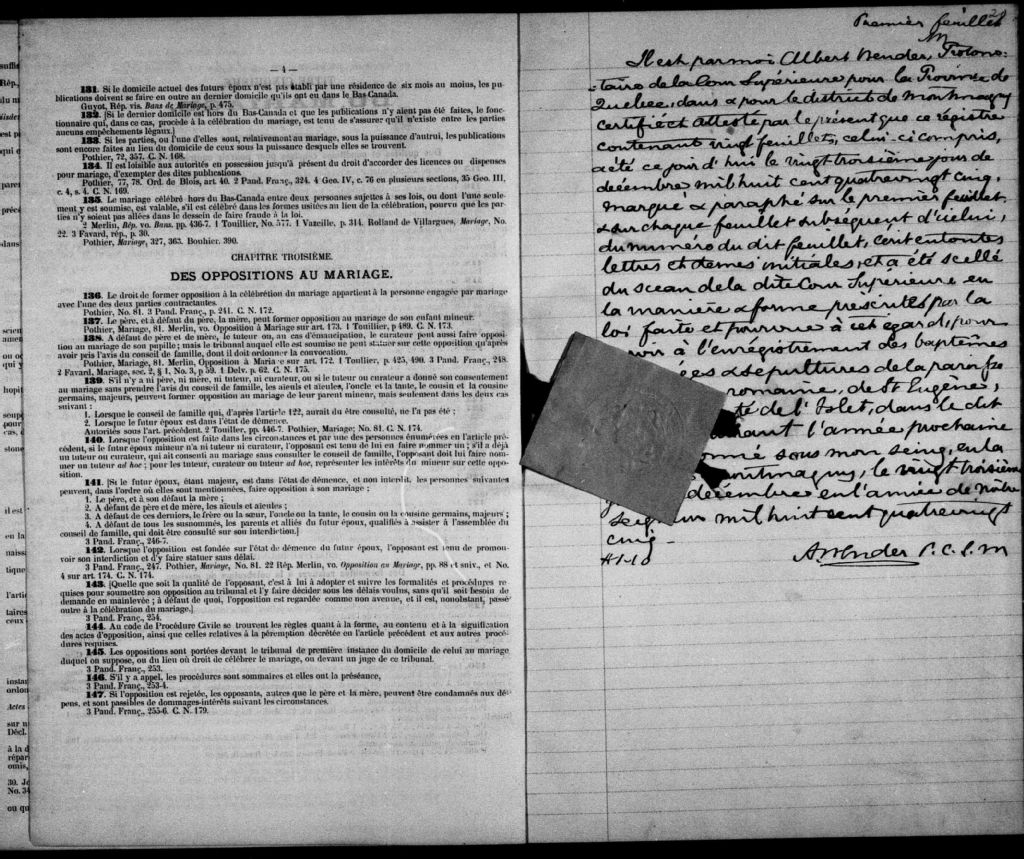 — 4 —
131. Si le domicile actuel des futurs époux n'est pas établi par une résidence de six mois au moins, les publications doivent se faire en outre au dernier domicile qu'ils ont eu dans le Bas-Canada.
Guyot, Rép. vis. Bans de Mariage, p. 475.
132. [Si le dernier domicile est hors du Bas-Canada et que les publications n'y aient pas été faites, le fonctionnaire qui, dans ce cas, procède à la célébration du mariage, est tenu de s'assurer qu'il n'existe entre les parties aucuns empêchements légaux.]
133. Si les parties, ou l'une d'elles sont, relativement au mariage, sous la puissance d'autrui, les publications sont encore faites au lieu du domicile de ceux sous la puissance desquels elles se trouvent.
Pothier, 72, 357. C. N. 168.
134. Il est loisible aux autorités en possession jusqu'à présent du droit d'accorder des licences ou dispenses pour mariage, d'exempter des dites publications.
Pothier, 77, 78. Ord. de Blois, art. 40. 2 Pand. Franç., 324. 4 Geo. IV, c. 76 en plusieurs sections, 35 Geo. III, c. 4, s. 4. C. N. 169.
135. Le mariage célébré hors du Bas-Canada entre deux personnes sujettes à ses lois, ou dont l'une seulement y est soumise, est valable, s'il est célébré dans les formes usitées au lieu de la célébration, pourvu que les parties n'y soient pas allées dans le dessein de faire fraude à la loi.
2 Merlin, Rép. vo. Bans. pp. 436-7. 1 Touillier, No. 577. 1 Vazeille, p. 314. Rolland de Villargues, Mariage, No. 22. 3 Favard, rép., p. 30.
Pothier, Mariage, 327, 363. Bouhier. 390.
CHAPITRE TROISIÈME.
DES OPPOSITIONS AU MARIAGE.
136. Le droit de former opposition à la célébration du mariage appartient à la personne engagée par mariage avec l'une des deux parties contractantes.
Pothier, No. 81. 3 Pand. Franç., p. 241. C. N. 172.
137. Le père, et à défaut du père, la mère, peut former opposition au mariage de son enfant mineur.
Pothier, Mariage, 81. Merlin, vo. Opposition à Mariage sur art. 173. 1 Touillier, p 489. C. N. 173.
138. A défaut de père et de mère, le tuteur ou, au cas d'émancipation, le curateur peut aussi faire opposition au mariage de son pupille; mais le tribunal auquel elle est soumise ne peut statuer sur cette opposition qu'après avoir pris l'avis du conseil de famille, dont il doit ordonner la convocation.
Pothier, Mariage, 81. Merlin, Opposition à Maria e sur art. 172. 1 Toullier, p. 425, 490. 3 Pand. Franç., 248. 2 Favard, Mariage, sec. 2, § 1, No. 3, p 59. 1 Delv. p. 62. C. N. 175.
139. S'il n'y a ni père, ni mère, ni tuteur, ni curateur, ou si le tuteur ou curateur a donné son consentement au mariage sans prendre l'avis du conseil de famille, les aïeuls et aïeules, l'oncle et la tante, le cousin et la cousine germains, majeurs, peuvent former opposition au mariage de leur parent mineur, mais seulement dans les deux cas suivant :
1. Lorsque le conseil de famille qui, d'après l'article 122, aurait du être consulté, ne l'a pas été ;
2. Lorsque le futur époux est dans l'état de démence.
Autorités sous l'art. précédent. 2 Touiller, pp. 446-7. Pothier, Mariage; No. 81. C. N. 174.
140. Lorsque l'opposition est faite dans les circonstances et par une des personnes énumérées en l'article précédent, si le futur époux mineur n'a ni tuteur ni curateur, l'opposant est tenu de lui en faire nommer un ; s'il a déjà un tuteur ou curateur, qui ait consenti au mariage sans consulter le conseil de famille, l'opposant doit lui faire nommer un tuteur ad hoc ; pour les tuteur, curateur ou tuteur ad hoc, représenter les intérêts du mineur sur cette opposition.
141. [Si le futur époux, étant majeur, est dans l'état de démence, et non interdit, les personnes suivantes peuvent, dans l'ordre où elles sont mentionnées, faire opposition à son mariage ;
1. Le père, et à son défaut la mère ;
2. A défaut de père et de mère, les aïeuls et aïeules ;
3. A défaut de ces derniers, le frère ou la sœur, l'oncle ou la tante, le cousin ou la cousine germains, majeurs ;
4. A défaut de tous les susnommés, les parents et alliés du futur époux, qualifiés à assister à l'assemblée du conseil de famille, qui doit être consulté sur son interdiction.]
3 Pand. Franç., 246-7.
142. Lorsque l'opposition est fondée sur l'état de démence du futur époux, l'opposant est tenu de promouvoir son interdiction et d'y faire statuer sans délai.
3 Pand. Franç., 247. Pothier, Mariage, No. 81. 22 Rép. Merlin, vo. Opposition au Mariage, pp. 88 et suiv., et No. 4 sur art. 174. C. N. 174.
143. [Quelle que soit la qualité de l'opposant, c'est à lui à adopter et suivre les formalités et procédures requises pour soumettre son opposition au tribunal et l'y faire décider sous les délais voulus, sans qu'il soit besoin de demande en mainlevée ; à défaut de quoi, l'opposition est regardée comme non avenue, et il est, nonobstant, passé outre à la célébration du mariage.]
3 Pand. Franç., 254.
144. Au code de Procédure Civile se trouvent les règles quant à la forme, au contenu et à la signification des actes d'opposition, ainsi que celles relatives à la péremption décrétée en l'article précédent et aux autres procédures requises.
145. Les oppositions sont portées devant le tribunal de première instance du domicile de celui au mariage duquel on suppose, ou du lieu où droit de célébrer le mariage, ou devant un juge de ce tribunal.
3 Pand. Franç., 253.
146. S'il y a appel, les procédures sont sommaires et elles ont la préséance,
3 Pand. Franç., 253-4.
147. Si l'opposition est rejetée, les opposants, autres que le père et la mère, peuvent être condamnés aux dépens, et sont passibles de dommages-intérêts suivant les circonstances.
3 Pand. Franç., 255-6. C. N. 179.
Premier feuillet
Il est par moi Albert Bender, Protono-
taire de la Cour Supérieure pour la Province de
Quebec, dans & pour le district de Montmagny
certifié et attesté par le présent que ce régistre
contenant vingt feuillets, celui-ci compris,
a été ce jour d'hui le vingt troisième jour de
décembre mil huit cent quatrevingt cinq,
marqué & paraphé sur le premier feuillet,
& sur chaque feuillet subséquent d'icelui,
du numéro du dit feuillet, écrit en toutes
lettres et de mes initiales, et a été scellé
du sceau de la dite Cour Supérieure en
la manière & forme prescrites par la
loi faite et pourvue à cet égard, pour
à l'enrégistrement des baptêmes
& sépultures de la paroisse
romaine, de St Eugène,
de l'Islet, dans le dit
l'année prochaine
sous mon seing, en la
le vingt troisième
décembre en l'année de nôtre
Seigneur mil huit cent quatrevingt
cinq.
A Bender P. C. S. M